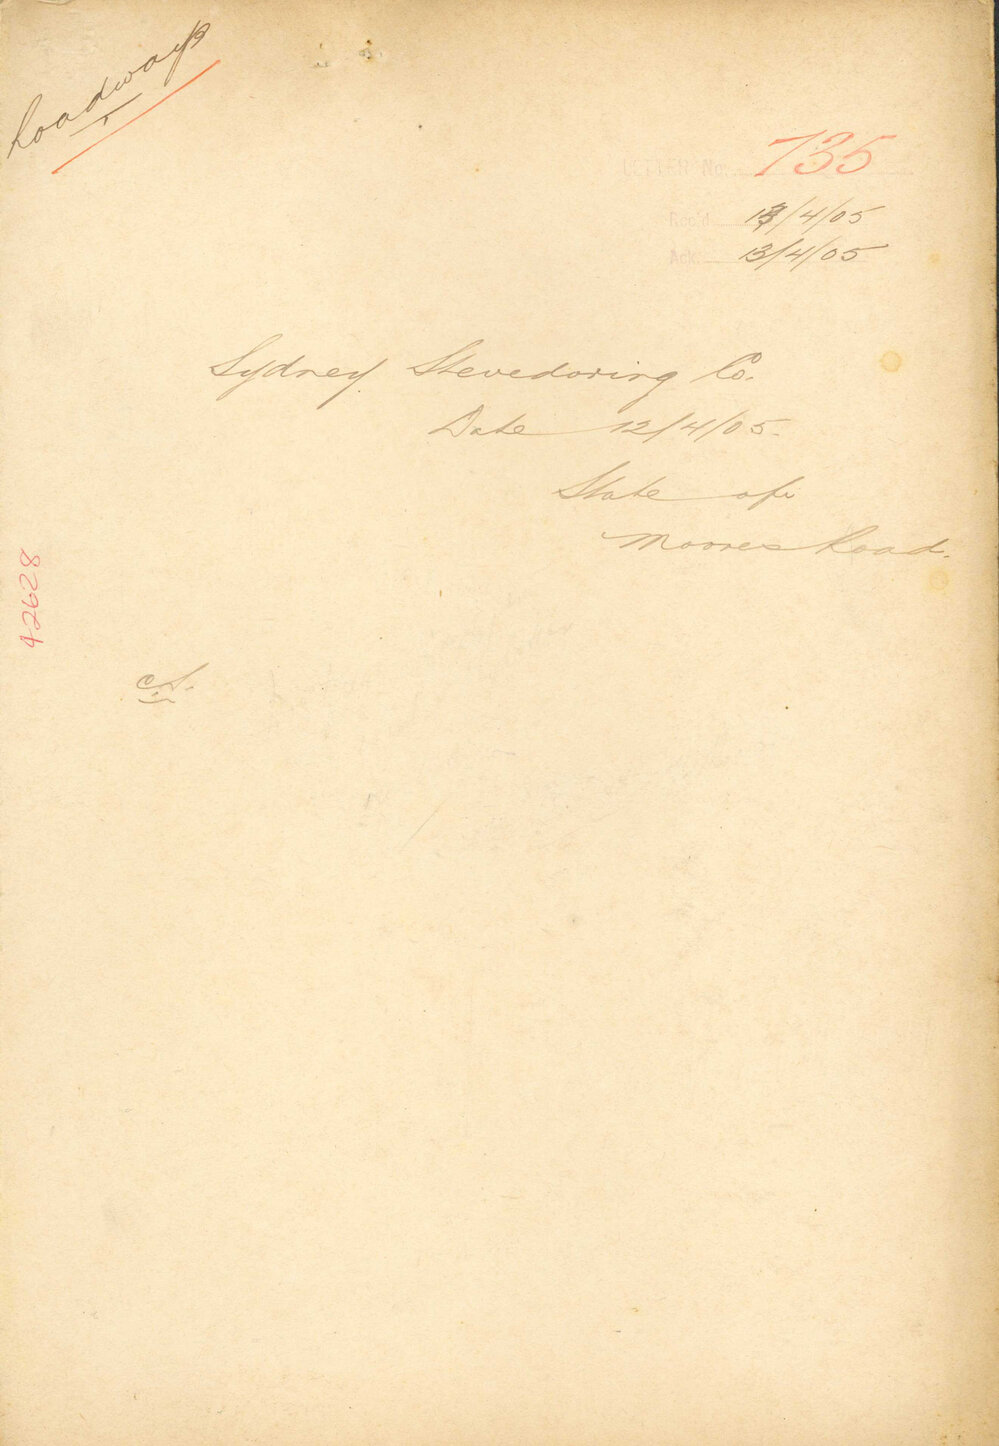 Roadways
LETTER No. 735
Rec'd 13/4/05
Ack. 13/4/05
Sydney Stevedoring Co.
Date 12/4/05.
State of
Moores Road.
42628